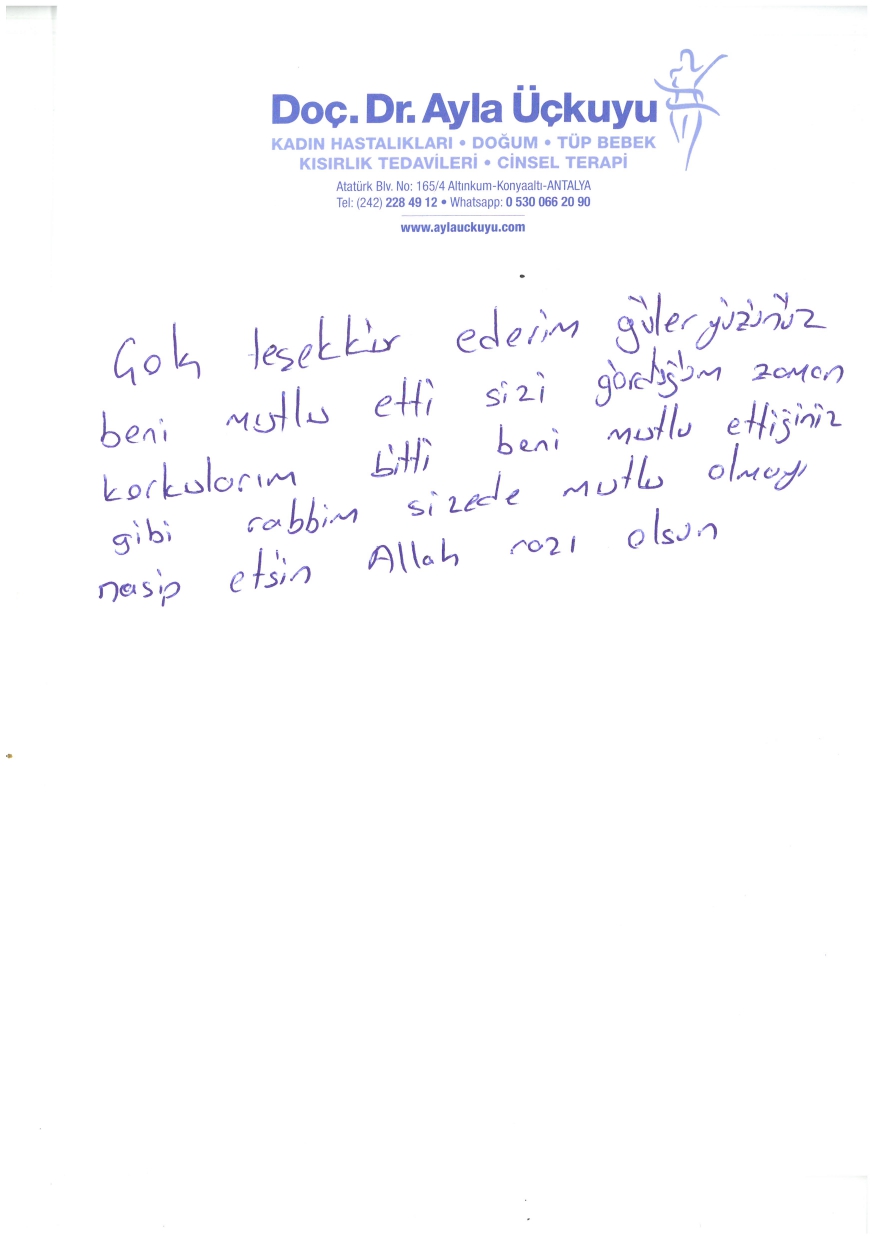 Doç. Dr. Ayla Üçkuyu
KADIN HASTALIKLARI • DOĞUM • TÜP BEBEK
KISIRLIK TEDAVİLERİ • CİNSEL TERAPİ
Atatürk Blv. No: 165/4 Altınkum-Konyaaltı-ANTALYA
Tel: (242) 228 49 12 • Whatsapp: 0 530 066 20 90
www.aylauckuyu.com
Çok teşekkür ederim güler yüzünüz
beni mutlu etti sizi gördüğüm zaman
korkularım bitti beni mutlu ettiğiniz
gibi rabbim sizede mutlu olmayı
nasip etsin Allah razı olsun